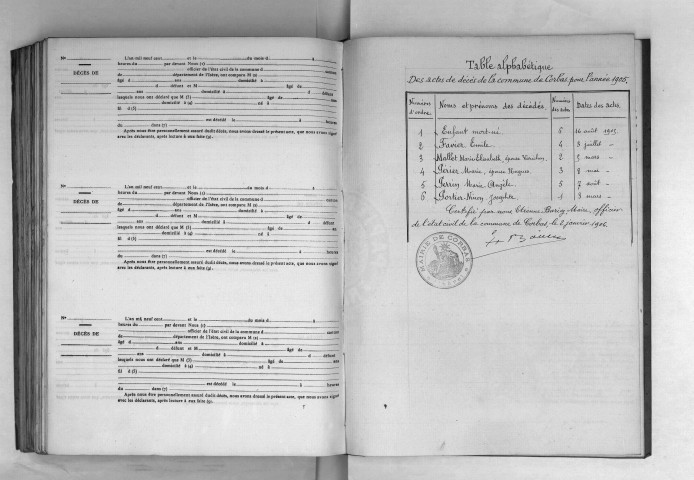 Nº L'an mil neuf cent et le du mois d à
heures du par devant Nous (1)
officier de l'état civil de la commune d canton
DÉCÈS DE
du département de l'Isère, ont comparu M (2)
âgé d ans domicilié à
d défunt et M âgé de
ans domicilié à d défunt
lesquels nous ont déclaré que M (3) âgé de ans
domicilié à (4) né à
fil d (5)
est décédé le à heures
du dans (7)
Après nous être personnellement assuré dudit décès, nous avons dressé le présent acte, que nous avons signé
avec les déclarants, après lecture à eux faite (9).
Nº L'an mil neuf cent et le du mois d à
heures du par devant Nous (1)
officier de l'état civil de la commune d canton
DÉCÈS DE
du département de l'Isère, ont comparu M (2)
âgé d ans domicilié à
d défunt et M âgé de
ans domicilié à d défunt
lesquels nous ont déclaré que M (3) âgé de ans
domicilié à (4) né à
fil d (5)
est décédé le à heures
du dans (7)
Après nous être personnellement assuré dudit décès, nous avons dressé le présent acte, que nous avons signé
avec les déclarants, après lecture à eux faite (9).
Nº L'an mil neuf cent et le du mois d à
heures du par devant Nous (1)
officier de l'état civil de la commune d canton
DÉCÈS DE
du département de l'Isère, ont comparu M (2)
âgé d ans domicilié à
d défunt et M âgé de
ans domicilié à d défunt
lesquels nous ont déclaré que M (3) âgé de ans
domicilié à (4) né à
fil d (5)
est décédé le à heures
du dans (7)
Après nous être personnellement assuré dudit décès, nous avons dressé le présent acte, que nous avons signé
avec les déclarants, après lecture à eux faite (9).
Table alphabétique
Des actes de décès de la commune de Corbas pour l'année 1905.
Numéros d'ordre Noms et prénoms des décédés Numéros des actes Dates des actes
1 Enfant mort-né 6 16 août 1905
2 Favier Emile 4 3 juillet "
3 Mallet Marie Elisabeth, épouse 2 5 mars "
4 Périer Marie, épouse Hugues 3 2 mai "
5 Perrin Marie Angèle 5 7 août "
6 Joséphte 1 3 mars "
Certifié par nous Etienne Maire, officier
de l'état civil de la commune de Corbas le 2 janvier 1906.
MAIRIE DE CORBAS